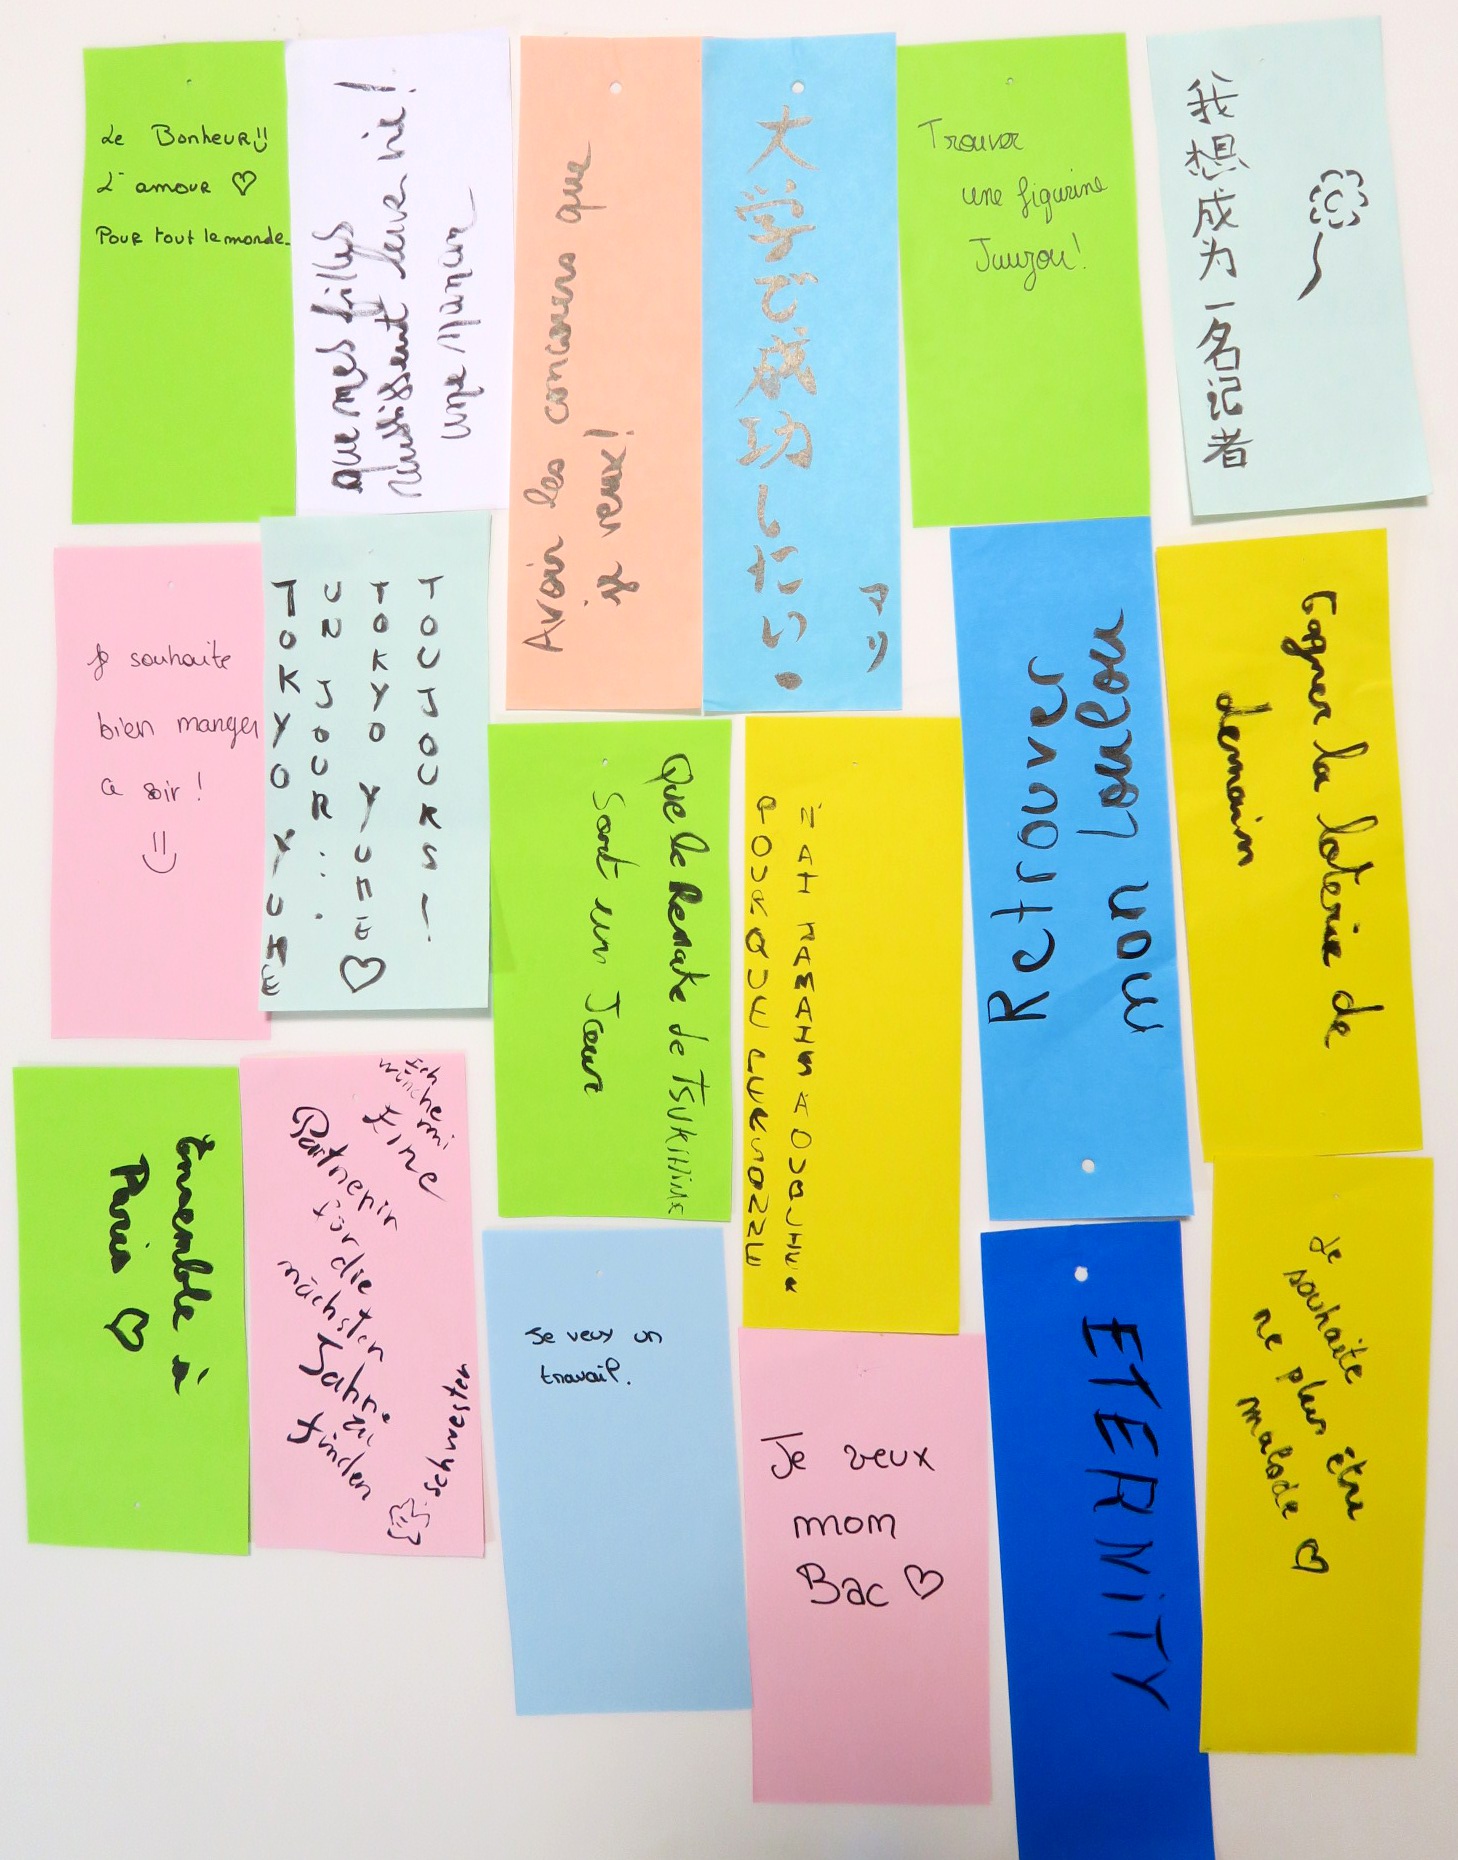 Le Bonheur
L'amour ♡
Pour tout le monde.
que mes filles
réussissent leur vie!
une maman
Avoir les concours que
je veux!
大学で成功したい。
アリ
Trouver
une figurine
Juuzou!
我想成为一名记者
Je souhaite
bien manger
ce soir !
TOUJOURS !
TOKYO YUME ♡
UN JOUR...
TOKYO YUME
Que le Remake de TSUKIHIME
Sort un Jour
N'AI JAMAIS À OUBLIER
POURQUOI
Retrouver
mon Loulou
Gagner la loterie de
demain
Ensemble à
Paris ♡
Ich
wünche mi
Eine
Partnerin
für die
nächsten
Jahre
zu
finden
Schwester
Je veux un
travail.
Je veux
mon
Bac ♡
ETERNITY
Je
souhaite
ne plus être
malade ♡